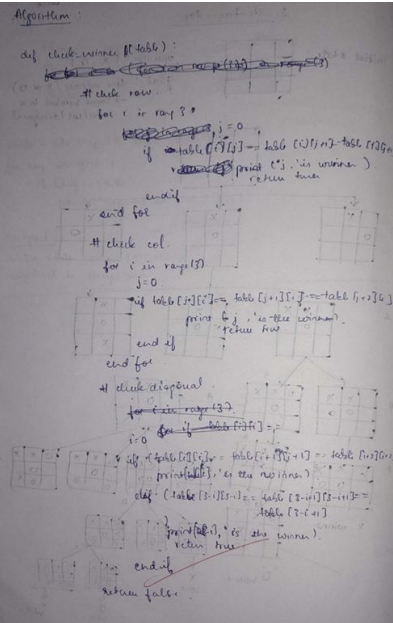 Algorithm :
def check-winner (table) :
# check row.
for i in rang 3 :
j = 0
if table [i][j] == table [i][j+1] == table [i][j+
print ( j, 'is winner ).
return true
endif
end for
# check col.
for i in range(3)
j=0
if table [j][i] == table [j+1][i] == table [j+2][i]
print ( j, 'is the winner).
return true
end if
end for
# check diagonal.
for i in range (3)
i=0
if (table[i][i] == table [i+1][i+1] == table [i+2][i+
print( , 'is the winner)
(table [3-i][3-i] == table [3-i+1][3-i+1] ==
table [3-i+1]
print( , 'is the winner).
return true
endif
return false.